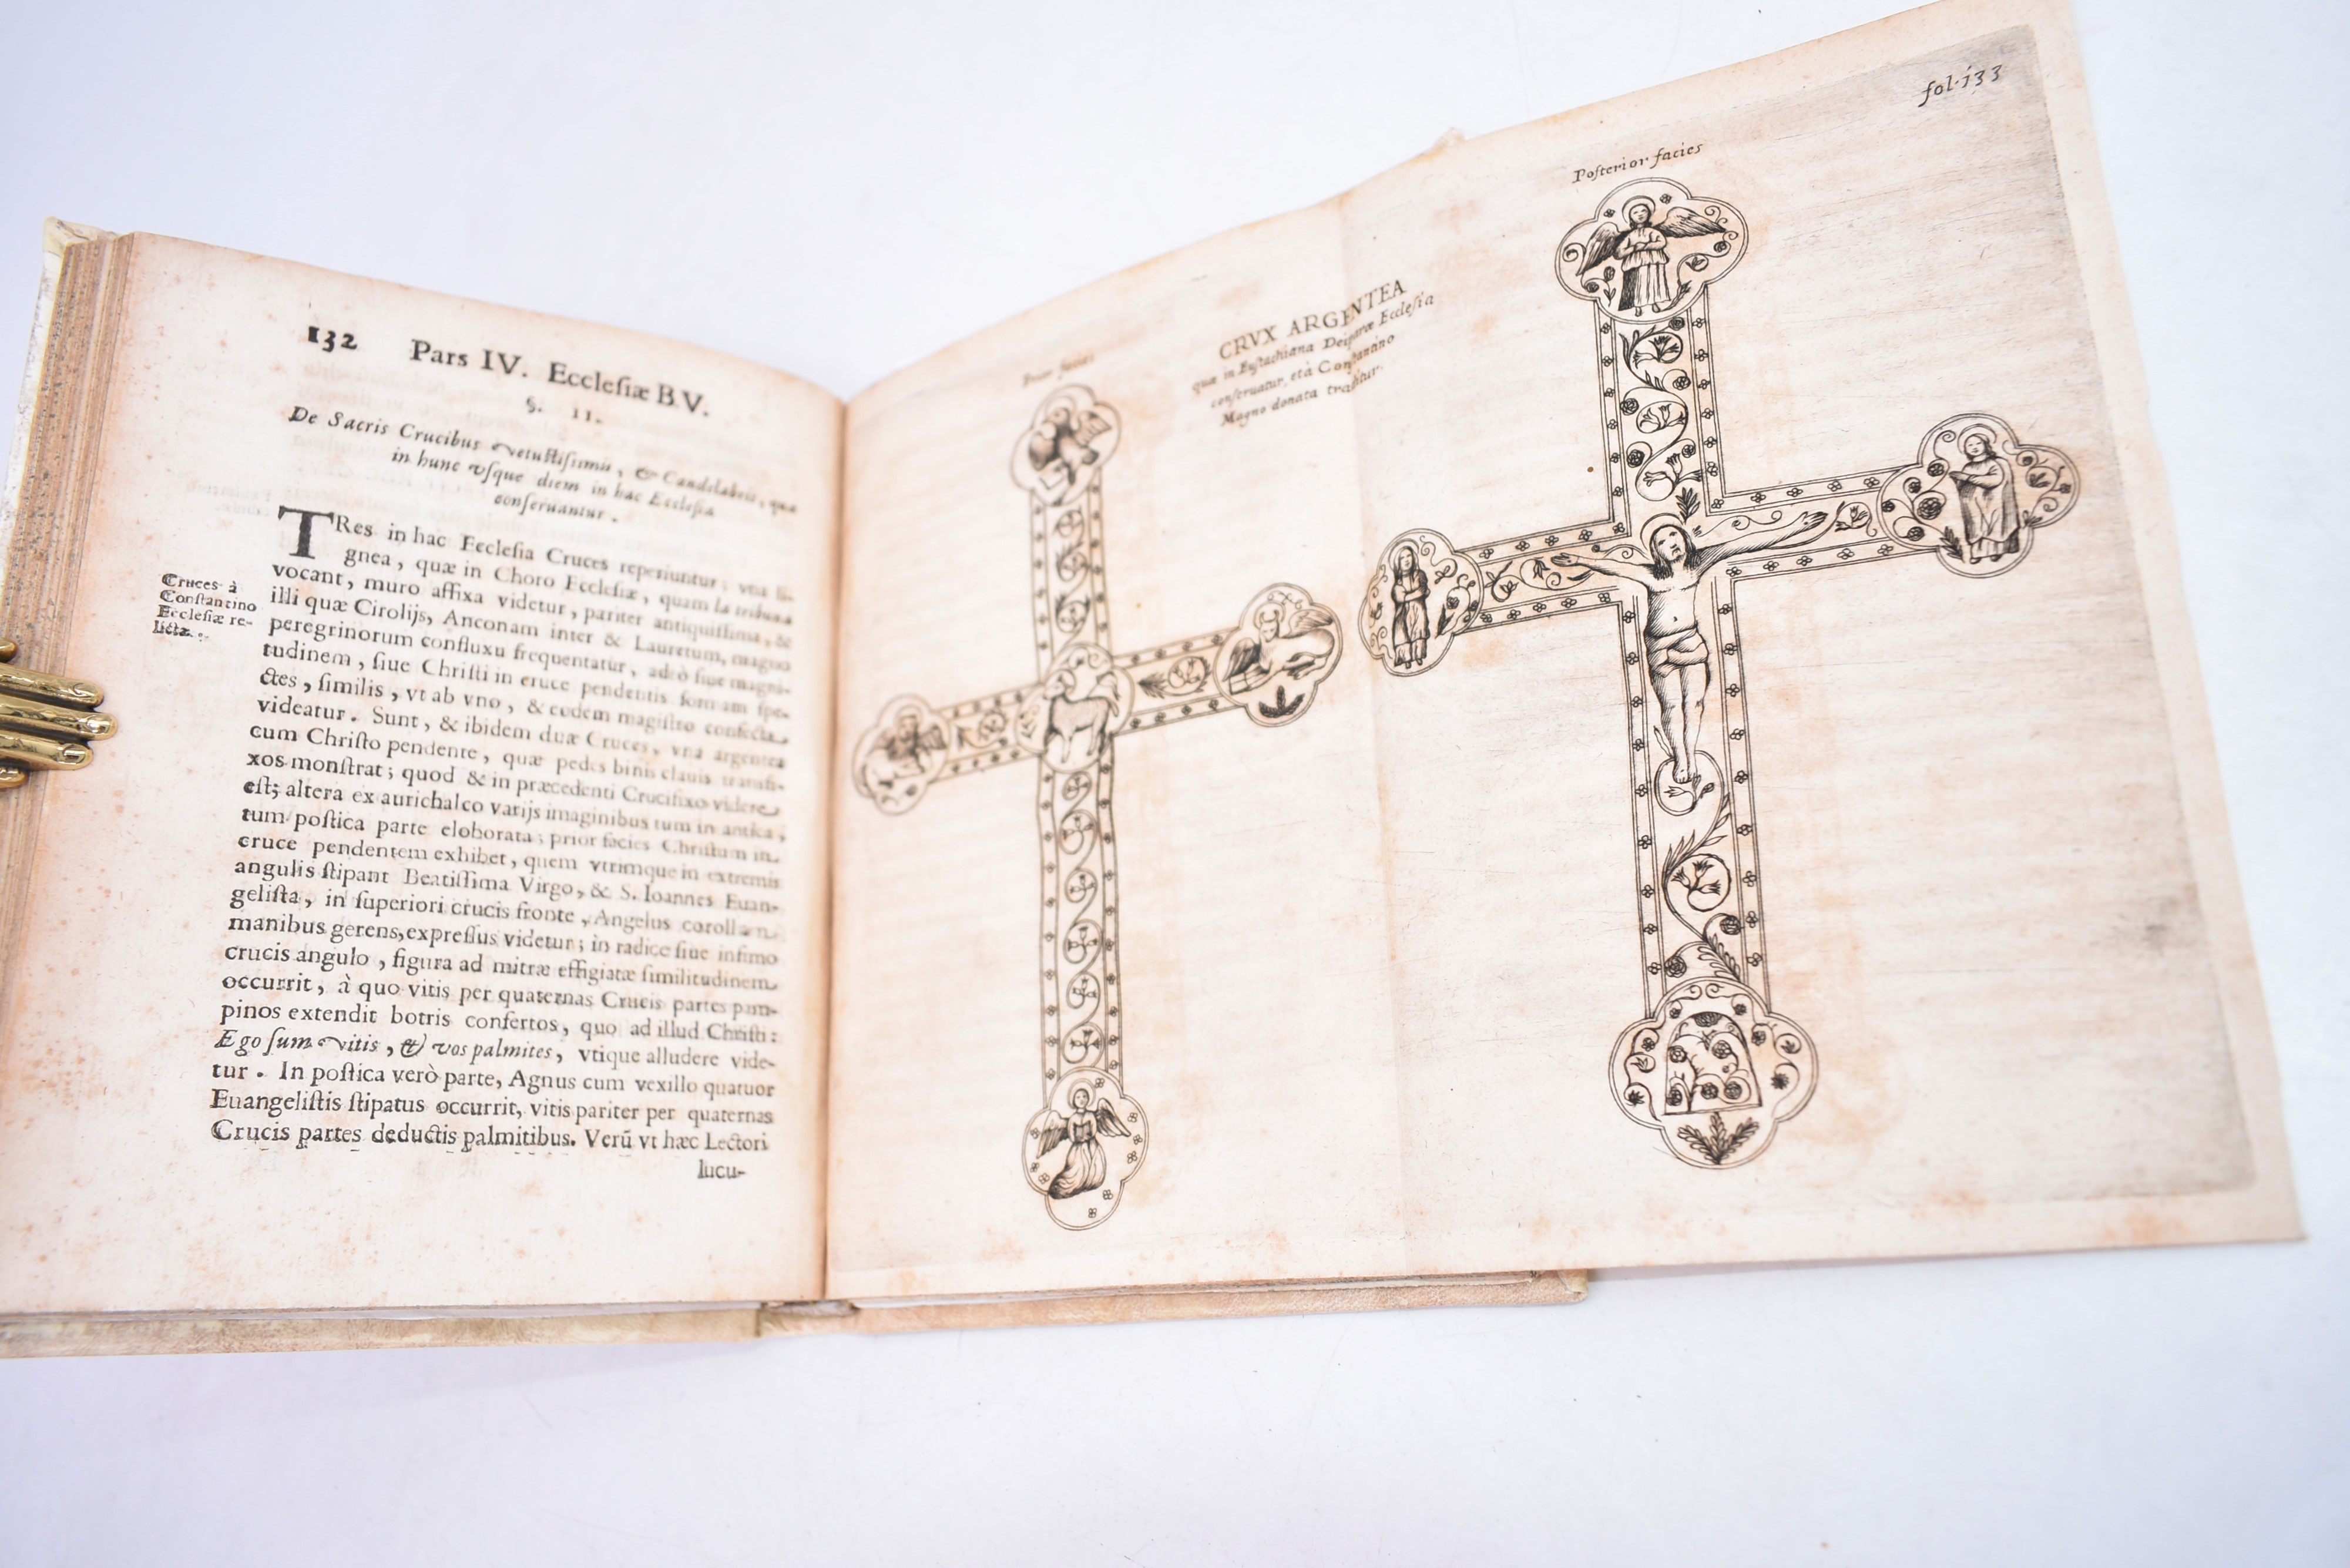 132 Pars IV. Ecclesiæ B.V.
§. II.
De Sacris Crucibus vetustissimis, & Candelabris, quæ
in hunc vsque diem in hac Ecclesia
conseruantur.
TRes in hac Ecclesia Cruces reperiuntur; vna li-
gnea, quæ in Choro Ecclesiæ, quam la tribuna
vocant, muro affixa videtur, pariter antiquissima, &
illi quæ Cirolijs, Anconam inter & Lauretum, magno
peregrinorum confluxu frequentatur, adeò siue magni-
tudinem, siue Christi in cruce pendentis formam spe-
ctes, similis, vt ab vno, & eodem magistro confecta
videatur. Sunt, & ibidem duæ Cruces, vna argentea
cum Christo pendente, quæ pedes binis clauis transfi-
xos monstrat; quod & in præcedenti Crucifixo videre
est; altera ex aurichalco varijs imaginibus tum in antica,
tum postica parte eloborata; prior facies Christum in
cruce pendentem exhibet, quem vtrimque in extremis
angulis stipant Beatissima Virgo, & S. Ioannes Euan-
gelista, in superiori crucis fronte, Angelus corollam
manibus gerens, expressus videtur; in radice siue infimo
crucis angulo, figura ad mitræ effigiatæ similitudinem
occurrit, à quo vitis per quaternas Crucis partes pam-
pinos extendit botris confertos, quo ad illud Christi:
Ego sum vitis, & vos palmites, vtique alludere vide-
tur. In postica verò parte, Agnus cum vexillo quatuor
Euangelistis stipatus occurrit, vitis pariter per quaternas
Crucis partes deductis palmitibus. Verũ vt hæc Lectori
lucu-
Cruces à
Constantino
Ecclesiæ re-
lictæ.
Prior facies
CRVX ARGENTEA
quæ in Eustachiana Deiparæ Ecclesia
conseruatur, et à Constantino
Magno donata traditur.
Posterior facies
fol. 133